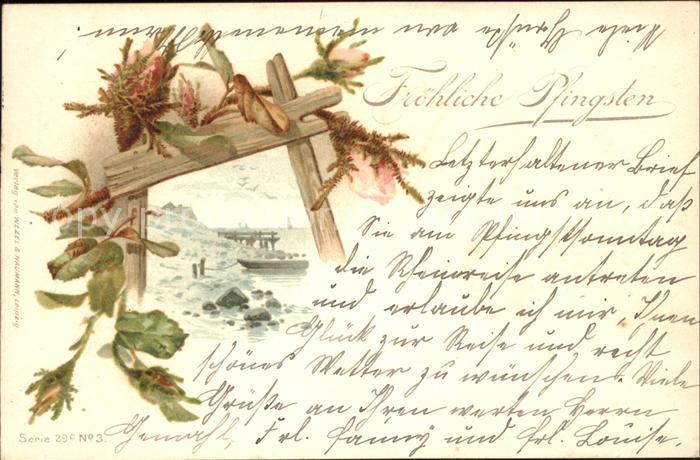 Fröhliche Pfingsten
Letzterhaltener Brief
zeigte uns an, daß
Sie am Pfingstsonntag
die Rheinreise antreten
und erlaube ich mir, Ihnen
Glück zur Reise und recht
schönes Wetter zu wünschen. Viele
Grüße an Ihren werten Herrn
Gemahl, Frl. Fanny und Frl. Louise.
Viele Grüße von
Verlag von WEZEL & NAUMANN, Leipzig
Serie 29c No 3.